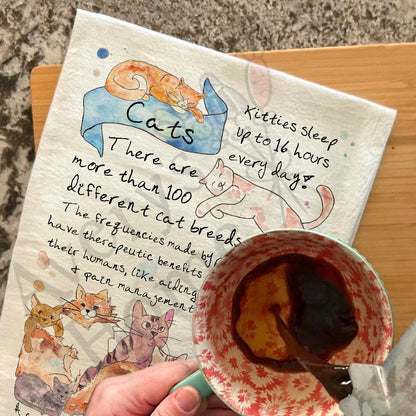 Cats
Kitties sleep
up to 16 hours
every day!
There are
more than 100
different cat breeds
The frequencies made by
have therapeutic benefits
their humans, like aiding
& pain management